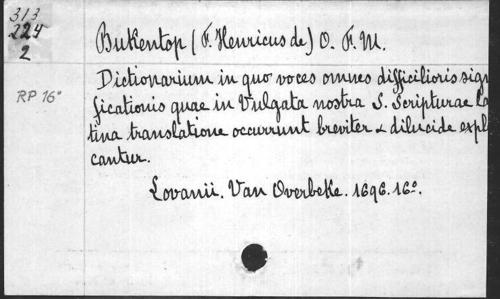 313
224
2
Bukentop (F. Henricus de) O. F. M.
RP 16°
Dictionarium in quo voces omnes difficilioris sig
ficationis quae in Vulgata nostra S. Scripturae La
tina translatione occurrunt breviter & dilucide expl
cantur.
Lovanii. Van Overbeke. 1696. 16°.